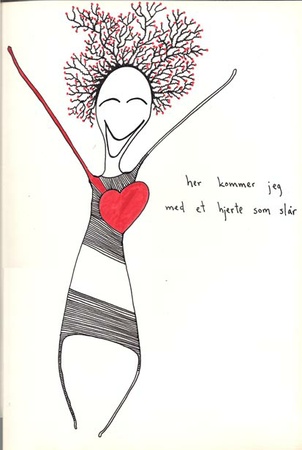 her kommer jeg
med et hjerte som slår